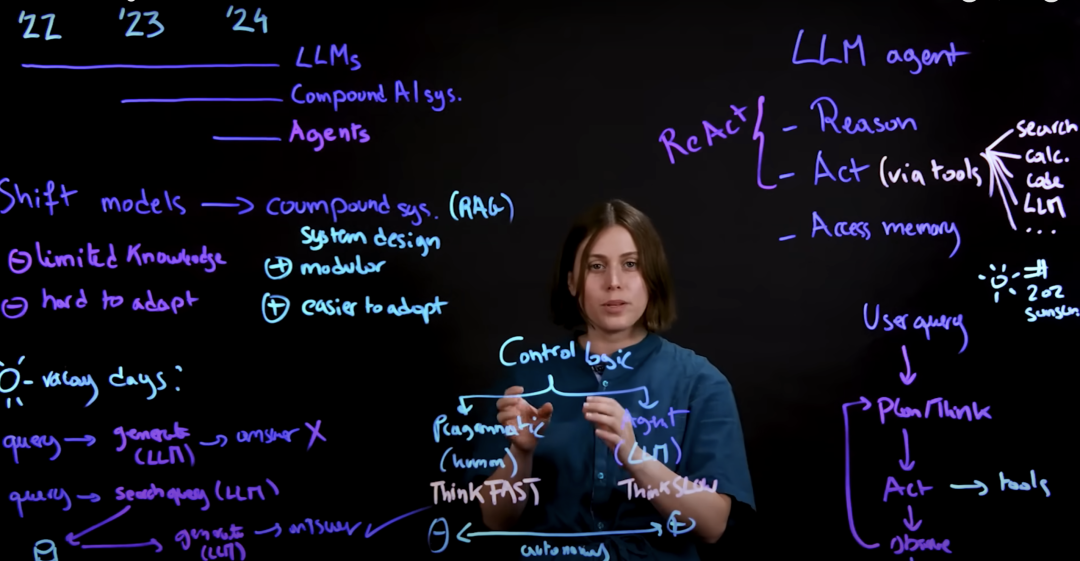 '22 '23 '24
LLMs
Compound AI sys.
Agents
Shift models → coumpound sys. (RAG)
system design
⊖ limited knowledge
⊕ modular
⊖ hard to adapt
⊕ easier to adapt
- vacay days:
query → generate (LLM) → answer X
query → search query (LLM)
generate (LLM) → answer
Control logic
(human)
(LLM)
Think FAST
Think SLOW
⊖ ⊕
autonomy
LLM agent
ReAct
- Reason
- Act (via tools)
- Access memory
search
calc.
code
LLM
...
User query
Plan/Think
Act → tools